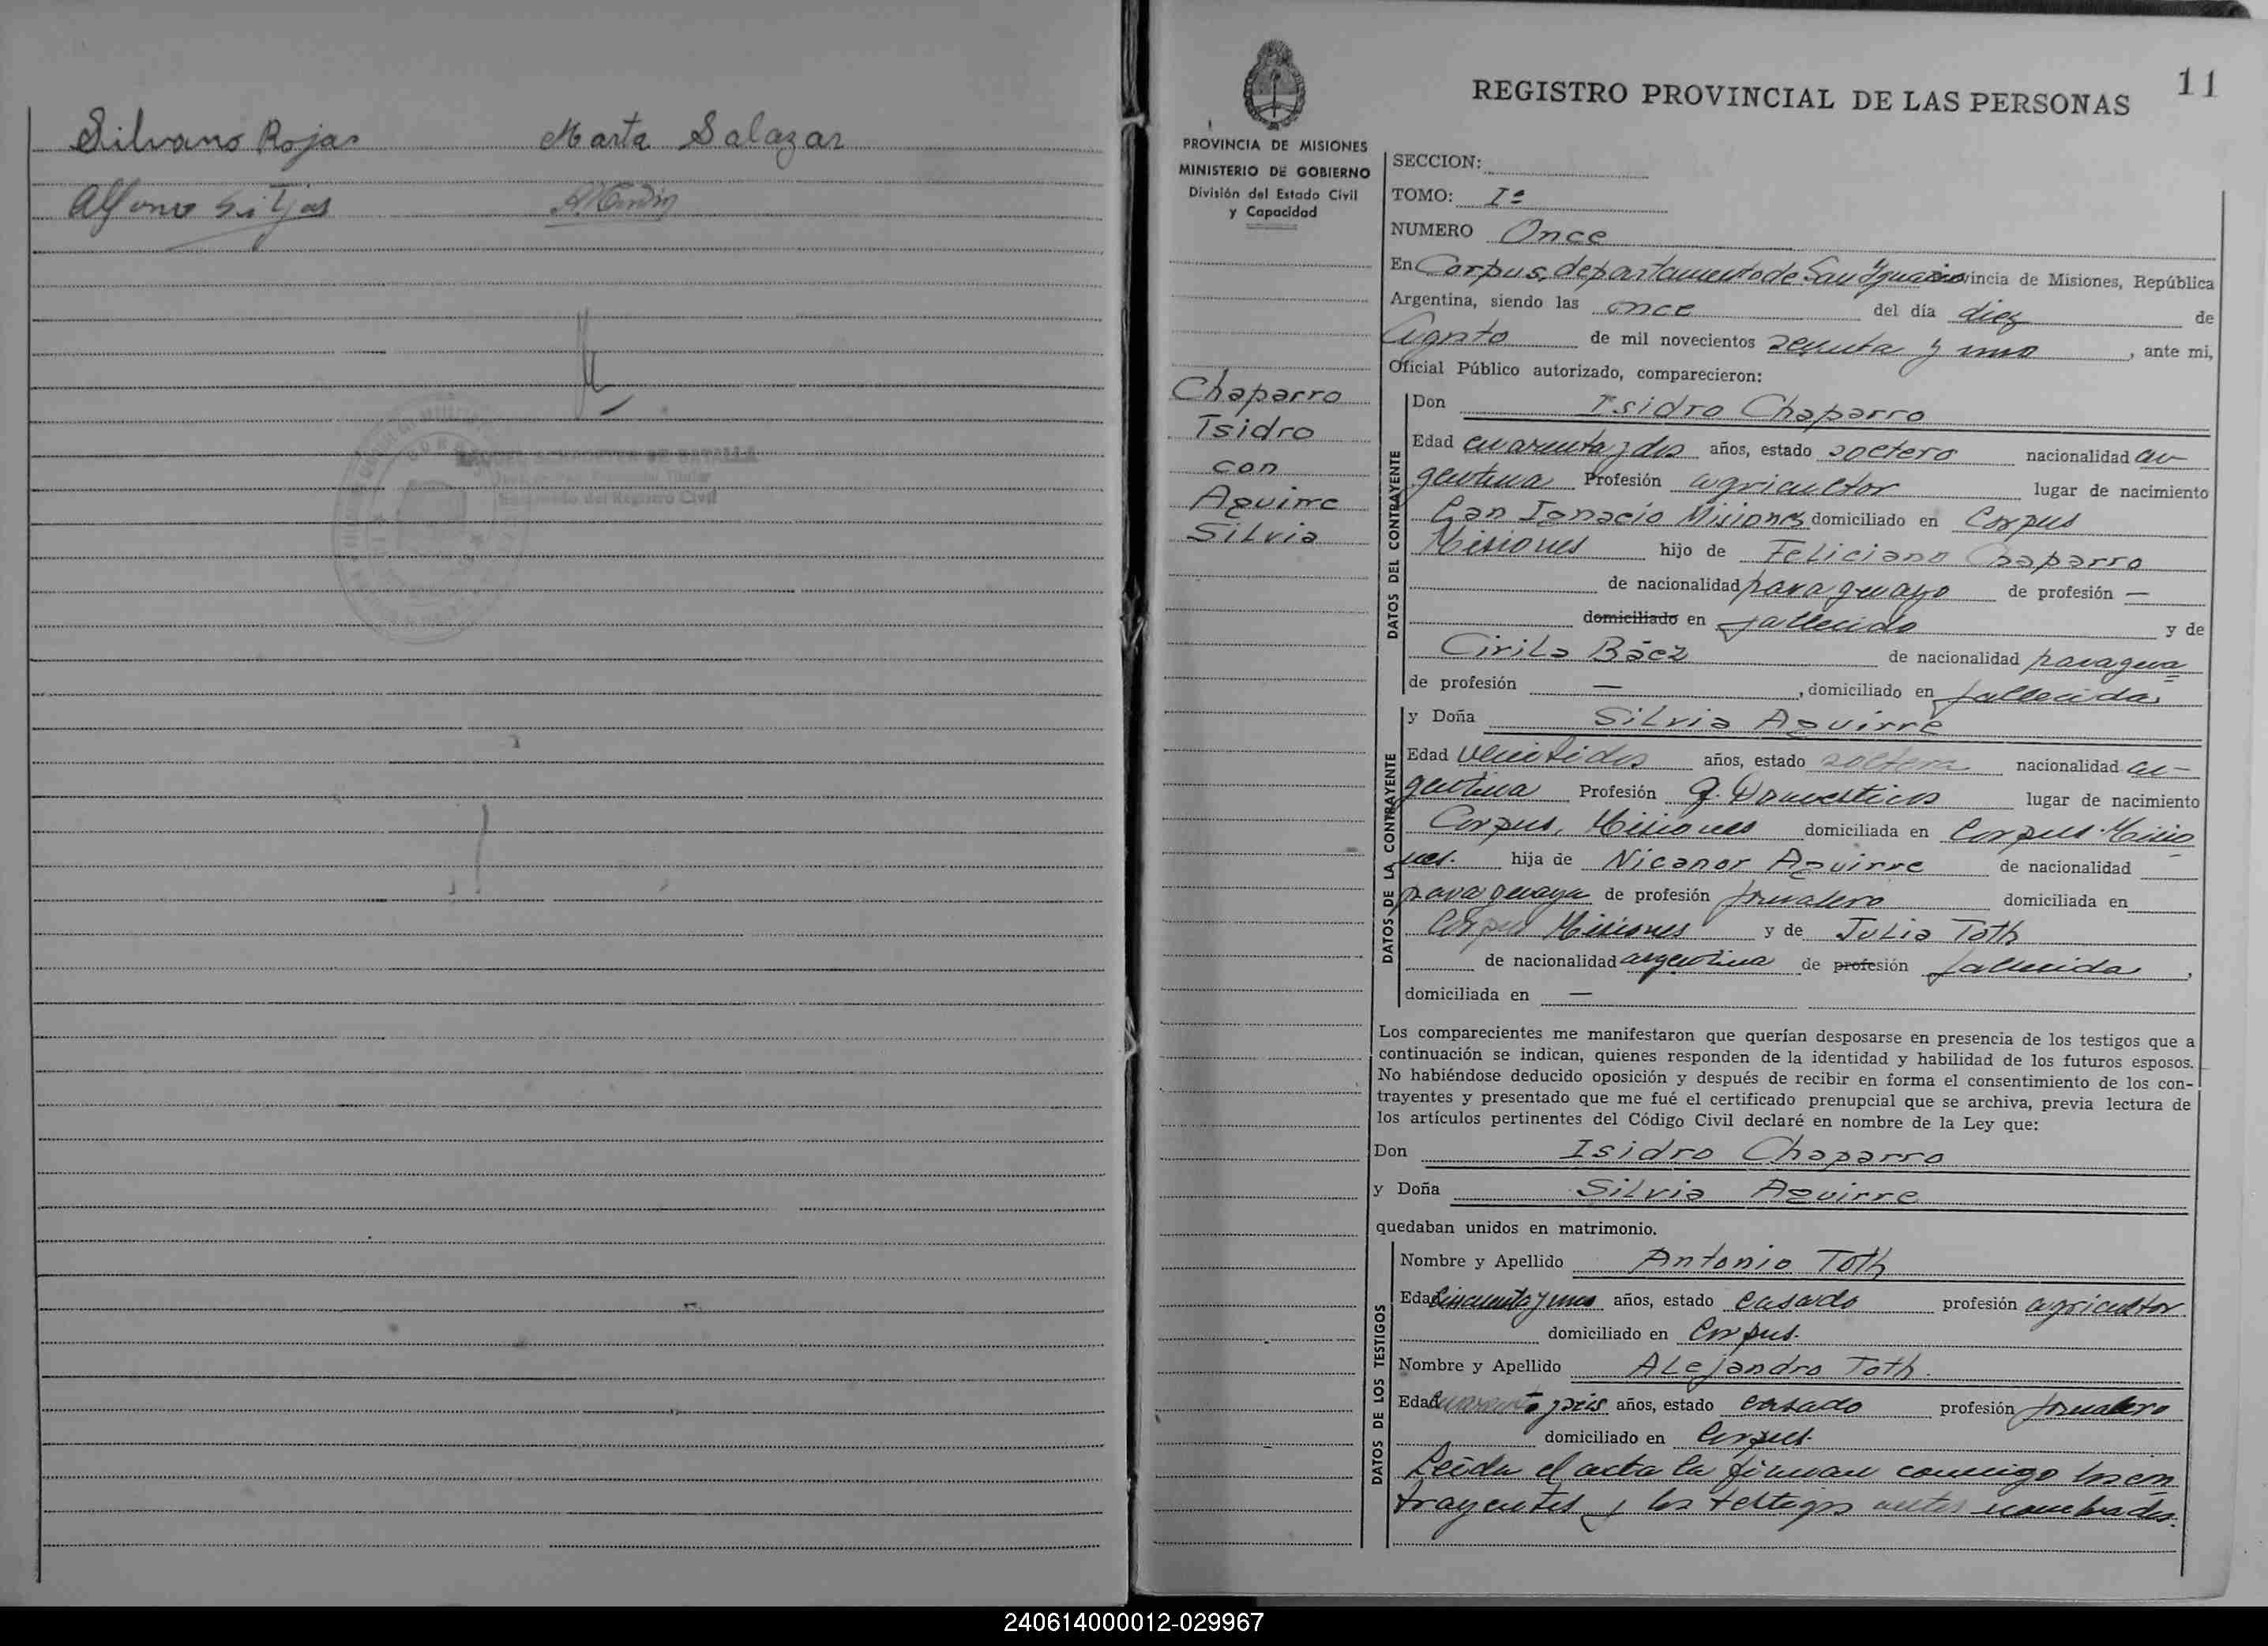 Silvano Rojas Marta Salazar
Alfonso Sitjas
RAQUEL DE BATALLA
del Registro Civil
11
REGISTRO PROVINCIAL DE LAS PERSONAS
PROVINCIA DE MISIONES
MINISTERIO DE GOBIERNO
División del Estado Civil
y Capacidad
Chaparro
Isidro
con
Aguirre
Silvia
SECCION:
TOMO: Iº
NUMERO Once
En Corpus, departamento de San Ignacio Provincia de Misiones, República
Argentina, siendo las once del día diez de
Agosto de mil novecientos setenta y uno, ante mi,
Oficial Público autorizado, comparecieron:
DATOS DEL CONTRAYENTE
Don Isidro Chaparro
Edad cuarenta y dos años, estado soltero nacionalidad ar-
gentina Profesión agricultor lugar de nacimiento
San Ignacio Misiones domiciliado en Corpus
Misiones hijo de Feliciano Chaparro
de nacionalidad paraguayo de profesión —
domiciliado en fallecido y de
Cirila Báez de nacionalidad paragua=
de profesión — , domiciliado en fallecida
DATOS DE LA CONTRAYENTE
y Doña Silvia Aguirre
Edad veintidos años, estado soltera nacionalidad ar-
gentina Profesión Q. Domesticos lugar de nacimiento
Corpus, Misiones domiciliada en Corpus Misio
nes. hija de Nicanor Aguirre de nacionalidad
paraguaya de profesión jornalero domiciliada en
Corpus Misiones y de Julia Toth
de nacionalidad argentina de profesión fallecida,
domiciliada en —
Los comparecientes me manifestaron que querían desposarse en presencia de los testigos que a
continuación se indican, quienes responden de la identidad y habilidad de los futuros esposos.
No habiéndose deducido oposición y después de recibir en forma el consentimiento de los con-
trayentes y presentado que me fué el certificado prenupcial que se archiva, previa lectura de
los artículos pertinentes del Código Civil declaré en nombre de la Ley que:
Don Isidro Chaparro
y Doña Silvia Aguirre
quedaban unidos en matrimonio.
DATOS DE LOS TESTIGOS
Nombre y Apellido Antonio Toth
Edad cincuenta y uno años, estado casado profesión agricultor
domiciliado en Corpus.
Nombre y Apellido Alejandro Toth.
Edad cuarenta y seis años, estado casado profesión jornalero
domiciliado en Corpus.
Leida el acta la firman conmigo los con
trayentes y los testigos antes nombrados.
240614000012-029967